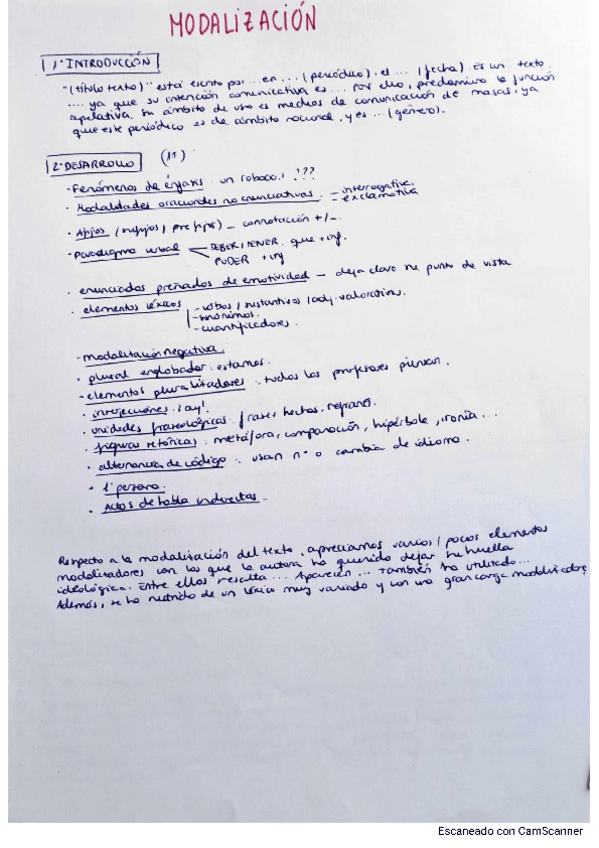 MODALIZACIÓN
1. INTRODUCCIÓN
"(título texto)" está escrito por ... en ... (periódico), el ... (fecha). Es un texto
... ya que su intención comunicativa es ... Por ello, predomina la función
apelativa. Su ámbito de uso es medios de comunicación de masas, ya
que este periódico es de ámbito nacional, y es ... (género).
2. DESARROLLO
· Fenómenos de énfasis: un !??
· Modalidades oracionales no enunciativas. - interrogativa.
- exclamativa
· Afijos (sufijos/prefijos) - connotación +/-.
· paradigma verbal DEBER/TENER que + inf.
PODER + inf
· enunciados preñados de emotividad - deja claro su punto de vista
· elementos léxicos - verbos/sustantivos/adj. valorativos.
- sinónimos.
- cuantificadores.
· modalización negativa.
· plural englobador: estamos.
- elementos pluralizadores: todos los profesores piensan.
· interjecciones: ¡ay!
· unidades fraseológicas: frases hechas, refranes.
· figuras retóricas: metáfora, comparación, hipérbole, ironía...
· alternancia de código: usan nº o cambia de idioma.
· 1ª persona.
· Actos de habla indirectos.
Respecto a la modalización del texto, apreciamos varios/pocos elementos
modalizadores con los que la autora ha querido dejar su huella
ideológica. Entre ellos resalta ... Aparecen ... También ha utilizado ...
Además, se ha nutrido de un léxico muy variado y con una gran carga modalizadora
Escaneado con CamScanner